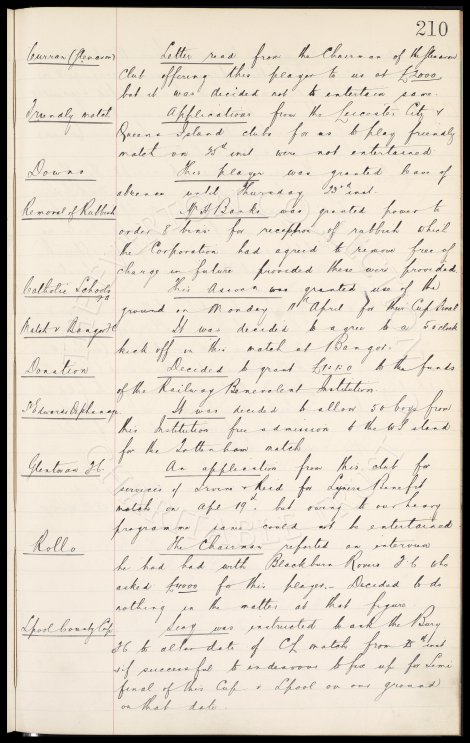 210
Curran (Glenavon) Letter read from the Chairman of the Glenavon
Club offering this player to us at £2000
but it was decided not to entertain same.
Friendly match Applications from the Leicester City &
Queens Island clubs for us to play friendly
match on 25th inst were not entertained
Downs This player was granted leave of
absence until Thursday 23rd inst.
Removal of Rubbish Mr H Banks was granted power to
order 8 bins for reception of rubbish which
the Corporation had agreed to remove free of
charge in future provided these were provided
Catholic Schools This Assocn was granted use of the
ground on Monday April for their Cup Final
Match v Bangor It was decided to agree to a 5 oclock
kick off in this match at Bangor.
Donation Decided to grant £1:1:0 to the funds
of the Railway Benevolent Institution.
St Edwards Orphanage It was decided to allow 50 boys from
this Institution free admission to the stand
for the Tottenham match
Glentoran F.C. An application from this club for
services of Irvine & Reid for Benefit
match on Apl 19th but owing to our heavy
programme same could not be entertained
Rollo The Chairman reported an interview
he had had with Blackburn Rovers F C who
asked £4000 for this player. Decided to do
nothing in the matter at that figure
Lpool County Cup Secy was instructed to ask the Bury
FC to alter date of CL match from inst
& if successful to endeavour to fix up for Semi
final of this Cup v Lpool on our ground
on that date.